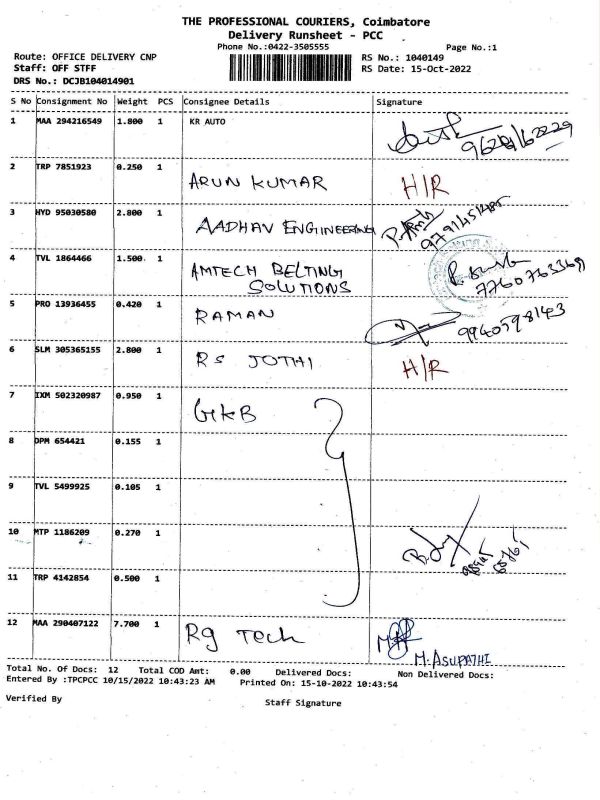 THE PROFESSIONAL COURIERS, Coimbatore
Delivery Runsheet - PCC
Phone No.:0422-3505555 Page No.:1
Route: OFFICE DELIVERY CNP RS No.: 1040149
Staff: OFF STFF RS Date: 15-Oct-2022
DRS No.: DCJB104014901
S No Consignment No Weight PCS Consignee Details Signature
1 MAA 294216549 1.800 1 KR AUTO
2 TRP 7851923 0.250 1 ARUN KUMAR H/R
3 HYD 95030580 2.800 1 AADHAV ENGINEERING
4 TVL 1864466 1.500 1 AMTECH BELTING
SOLUTIONS 7760763369
5 PRO 13936455 0.420 1 RAMAN 9940798143
6 SLM 305365155 2.800 1 RS JOTHI H/R
7 IXM 502320987 0.950 1 GKB
8 DPM 654421 0.155 1
9 TVL 5499925 0.105 1
10 MTP 1186209 0.270 1
11 TRP 4142854 0.500 1
12 MAA 290407122 7.700 1 Rg Tech
M. ASUPATHI
Total No. Of Docs: 12 Total COD Amt: 0.00 Delivered Docs: Non Delivered Docs:
Entered By :TPCPCC 10/15/2022 10:43:23 AM Printed On: 15-10-2022 10:43:54
Verified By Staff Signature